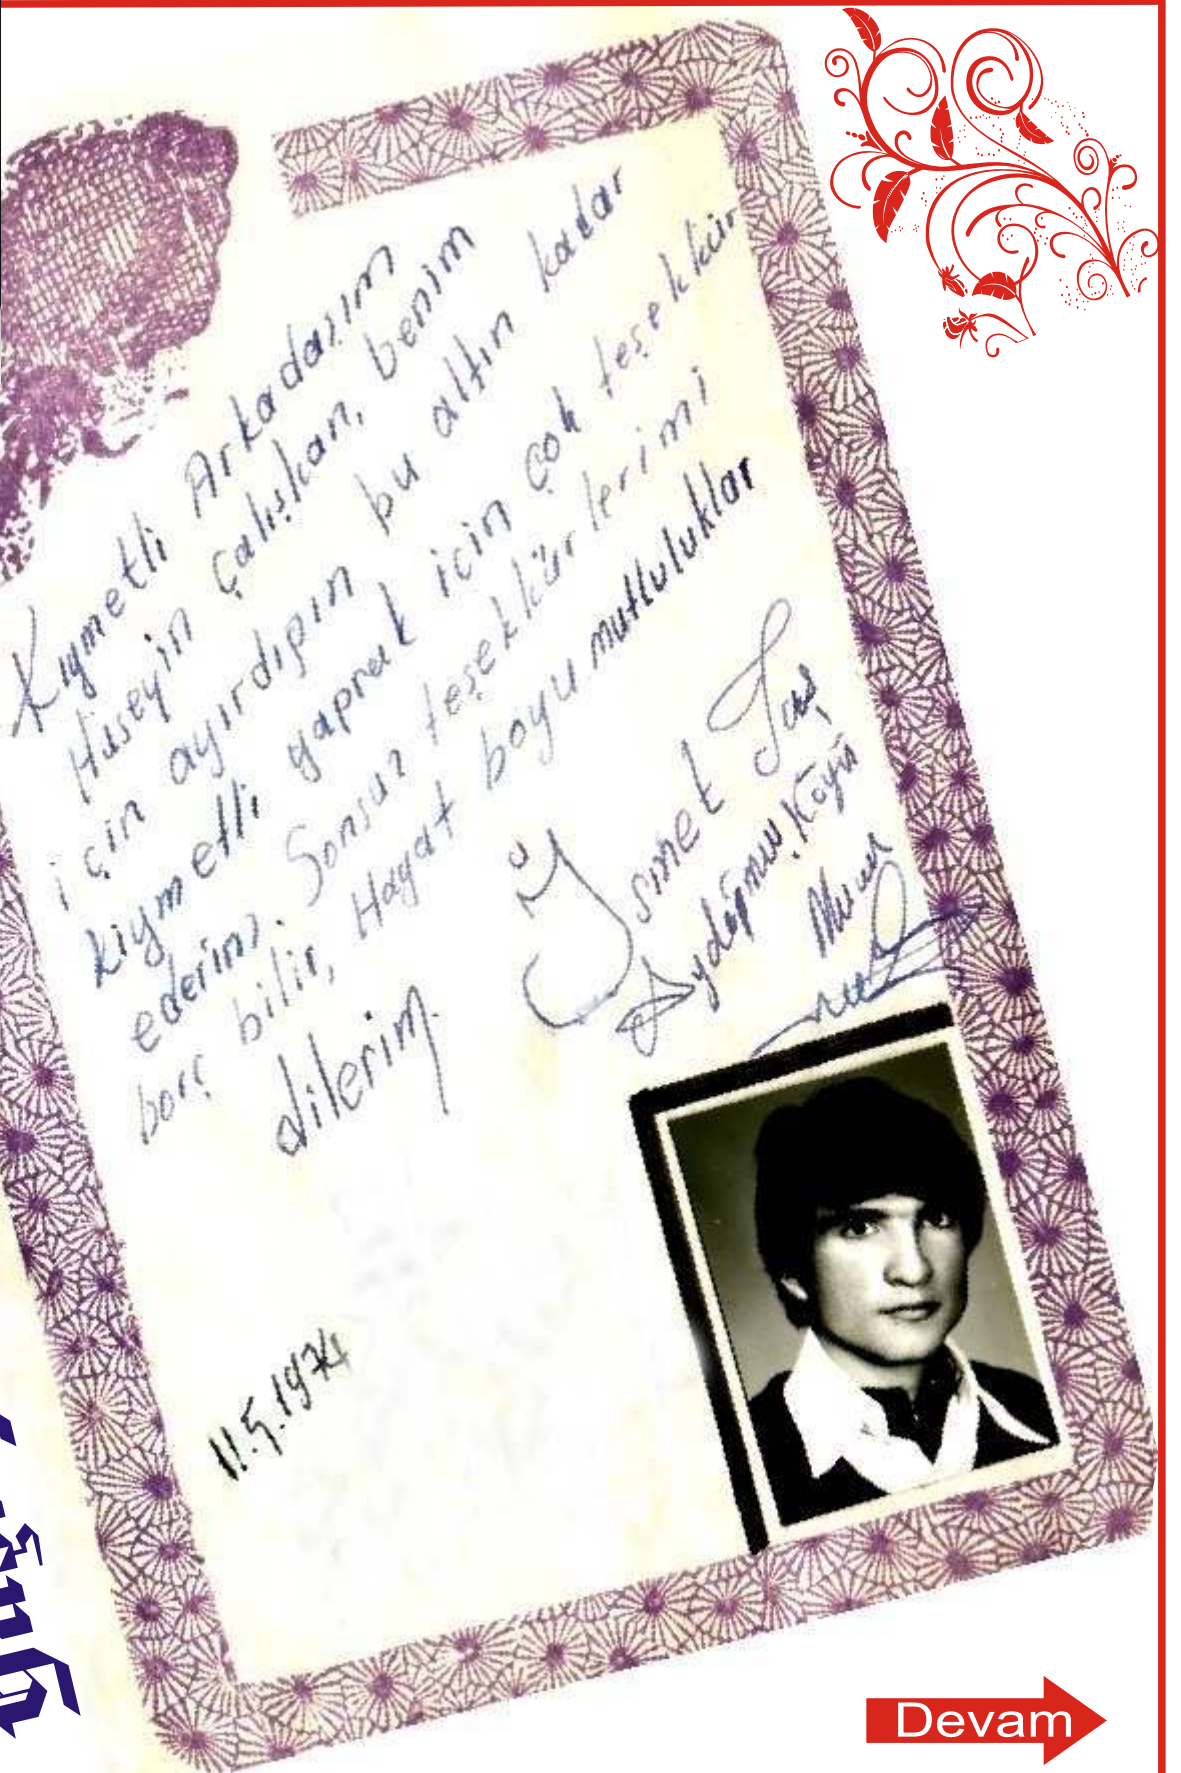 Kıymetli Arkadaşım
Hüseyin Çalışkan, benim
için ayırdığın bu altın kadar
kıymetli yaprak için çok teşekkür
ederim. Sonsuz teşekkürlerimi
borç bilir, Hayat boyu mutluluklar
dilerim.
İsmet
Köyü
11.5.1974
Devam